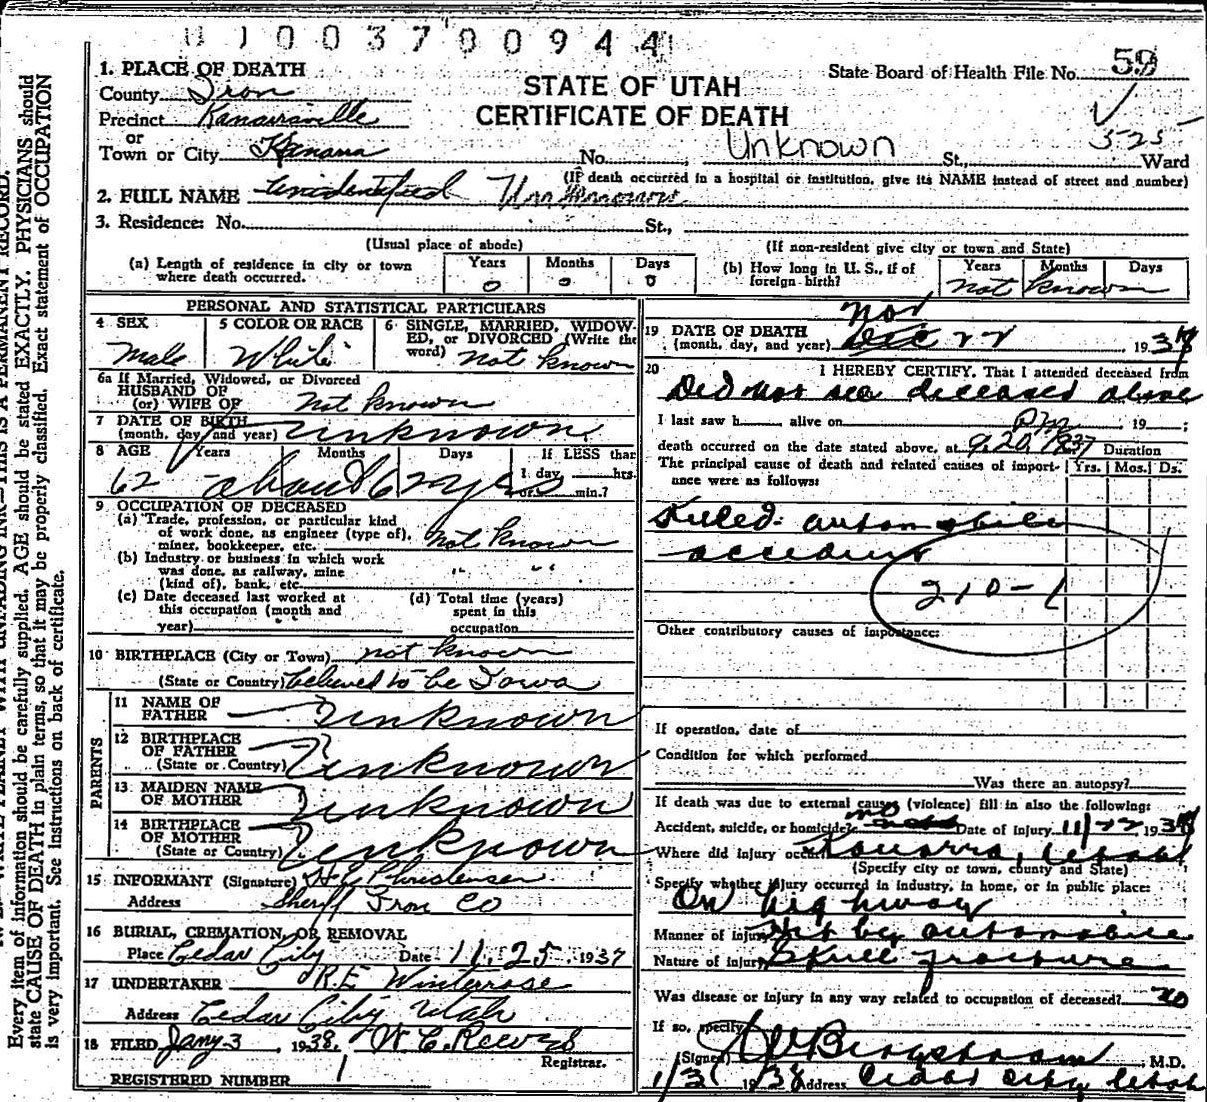 1 0 0 3 7 0 0 9 4 4
1. PLACE OF DEATH
County Iron
Precinct Kanarraville
or
Town or City Kanarra
STATE OF UTAH
CERTIFICATE OF DEATH
State Board of Health File No. 59
525
No. Unknown St., Ward
(If death occurred in a hospital or institution, give its NAME instead of street and number)
2. FULL NAME Unidentified Unknown
3. Residence: No. St.,
(Usual place of abode) (If non-resident give city or town and State)
(a) Length of residence in city or town where death occurred. Years 0 Months 0 Days 0
(b) How long in U. S., if of foreign birth? Years Months Days not known
PERSONAL AND STATISTICAL PARTICULARS
4 SEX Male
5 COLOR OR RACE White
6 SINGLE, MARRIED, WIDOWED, or DIVORCED (Write the word) not known
6a If Married, Widowed, or Divorced
HUSBAND OF
(or) WIFE OF not known
7 DATE OF BIRTH
(month, day, and year) unknown
8 AGE Years Months Days If LESS than
1 day hrs.
or min.?
62 about 62 yrs
9 OCCUPATION OF DECEASED
(a) Trade, profession, or particular kind
of work done, as engineer (type of),
miner, bookkeeper, etc. not known
(b) Industry or business in which work
was done, as railway, mine
(kind of), bank, etc. " "
(c) Date deceased last worked at
this occupation (month and
year)
(d) Total time (years)
spent in this
occupation
10 BIRTHPLACE (City or Town) not known
(State or Country) believed to be Iowa
PARENTS
11 NAME OF
FATHER unknown
12 BIRTHPLACE
OF FATHER
(State or Country) unknown
13 MAIDEN NAME
OF MOTHER unknown
14 BIRTHPLACE
OF MOTHER
(State or Country) unknown
15 INFORMANT (Signature) Christensen
Address Sheriff Iron Co
16 BURIAL, CREMATION, OR REMOVAL
Place Cedar City Date 11. 25. 1937
17 UNDERTAKER R.E Winterose
Address Cedar City Utah
18 FILED Jany 3, 1938, W. C. Reeves
Registrar.
REGISTERED NUMBER 1
19 DATE OF DEATH
(month, day, and year) Nov Dec 22 1937
20 I HEREBY CERTIFY, That I attended deceased from
Did not see deceased alive
I last saw h alive on , 19 ;
death occurred on the date stated above, at 9.20 PM Duration
The principal cause of death and related causes of importance were as follows: Yrs. Mos. Ds.
Killed. automobile
accident
210-1
Other contributory causes of importance:
If operation, date of
Condition for which performed
Was there an autopsy?
If death was due to external causes (violence) fill in also the following:
Accident, suicide, or homicide? no Date of injury 11/22 1937
Where did injury occur? Kanarra, Utah
(Specify city or town, county and State)
Specify whether injury occurred in industry, in home, or in public place:
On highway
Manner of injury Hit by automobile
Nature of injury Skull fracture
Was disease or injury in any way related to occupation of deceased? no
If so, specify
(Signed) Bergstrom M.D.
1/3 1938 Address Cedar City Utah
WRITE PLAINLY WITH UNFADING INK—THIS IS A PERMANENT RECORD.
Every item of information should be carefully supplied. AGE should be stated EXACTLY. PHYSICIANS should
state CAUSE OF DEATH in plain terms, so that it may be properly classified. Exact statement of OCCUPATION
is very important. See instructions on back of certificate.